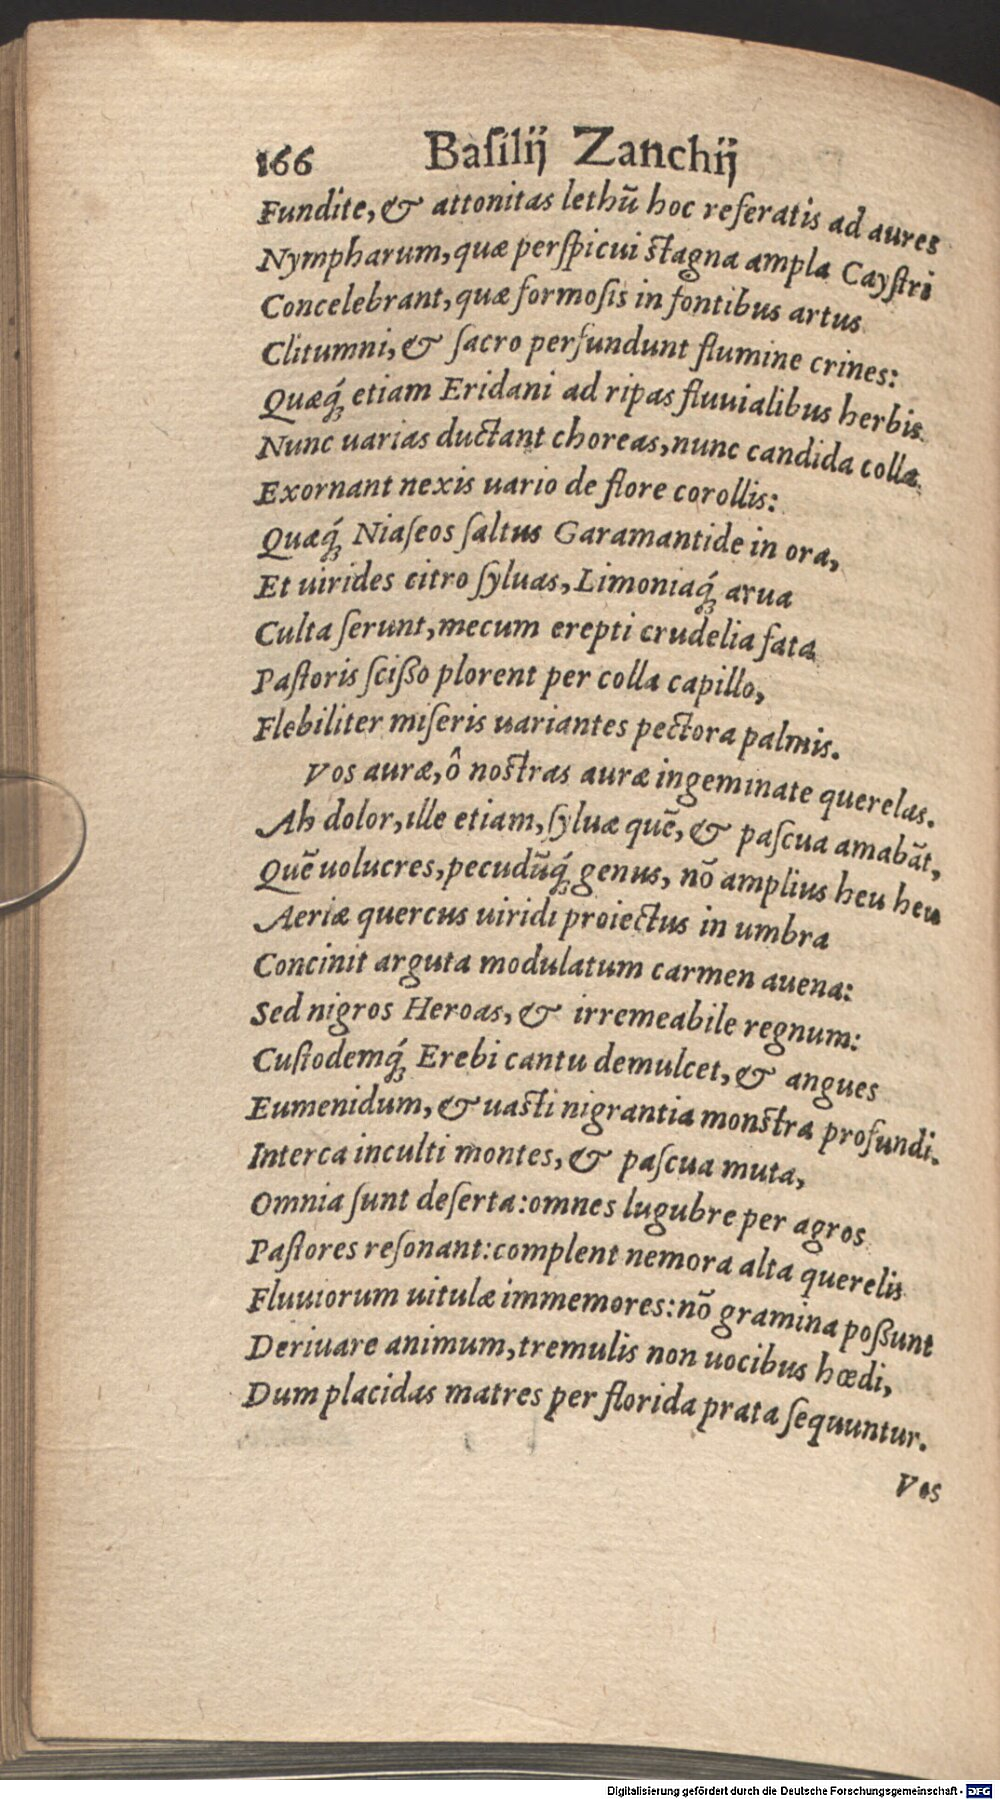 166 Baſilij Zanchij
Fundite, & attonitas lethū hoc referatis ad aures
Nympharum, quæ perſpicui ſtagna ampla Cayſtri
Concelebrant, quæ formoſis in fontibus artus
Clitumni, & ſacro perfundunt flumine crines:
Quæq́ꝫ etiam Eridani ad ripas fluuialibus herbis
Nunc uarias ductant choreas, nunc candida colla
Exornant nexis uario de flore corollis:
Quæq́ꝫ Niaſeos ſaltus Garamantide in ora,
Et uirides citro ſyluas, Limoniaq́ꝫ arua
Culta ſerunt, mecum erepti crudelia fata
Paſtoris ſcißo plorent per colla capillo,
Flebiliter miſeris uariantes pectora palmis.
Vos auræ, ô noſtras auræ ingeminate querelas.
Ah dolor, ille etiam, ſyluæ quē, & paſcua amabāt,
Quē uolucres, pecudūq́ꝫ genus, nō amplius heu heu
Aeriæ quercus uiridi proiectus in umbra
Concinit arguta modulatum carmen auena:
Sed nigros Heroas, & irremeabile regnum:
Cuſtodemq́ꝫ Erebi cantu demulcet, & angues
Eumenidum, & uaſti nigrantia monſtra profundi.
Interea inculti montes, & paſcua muta,
Omnia ſunt deſerta: omnes lugubre per agros
Paſtores reſonant: complent nemora alta querelis
Fluuiorum uitulæ immemores: nō gramina poßunt
Deriuare animum, tremulis non uocibus hœdi,
Dum placidas matres per florida prata ſequuntur.
Vos
Digitalisierung gefördert durch die Deutsche Forschungsgemeinschaft - DFG